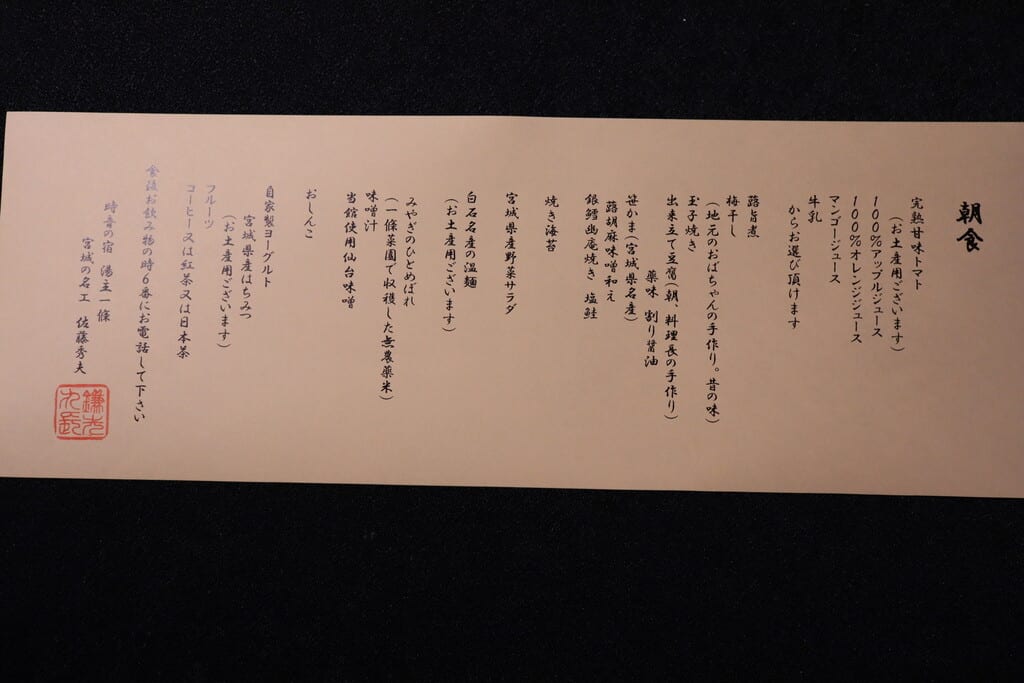 朝食
完熟甘味トマト
(お土産用ございます)
100%アップルジュース
100%オレンジジュース
マンゴージュース
牛乳
からお選び頂けます
蕗旨煮
梅干し
(地元のおばちゃんの手作り。昔の味)
玉子焼き
出来立て豆腐(朝、料理長の手作り)
薬味 割り醤油
笹かま(宮城県名産)
蕗胡麻味噌和え
銀鱈幽庵焼き 塩鮭
焼き海苔
宮城県産野菜サラダ
白石名産の温麺
(お土産用ございます)
みやぎのひとめぼれ
(一條菜園で収穫した無農薬米)
味噌汁
当館使用仙台味噌
おしんこ
自家製ヨーグルト
宮城県産はちみつ
(お土産用ございます)
フルーツ
コーヒー又は紅茶又は日本茶
食後お飲み物の時6番にお電話して下さい
時音の宿 湯主一條
宮城の名工 佐藤秀夫